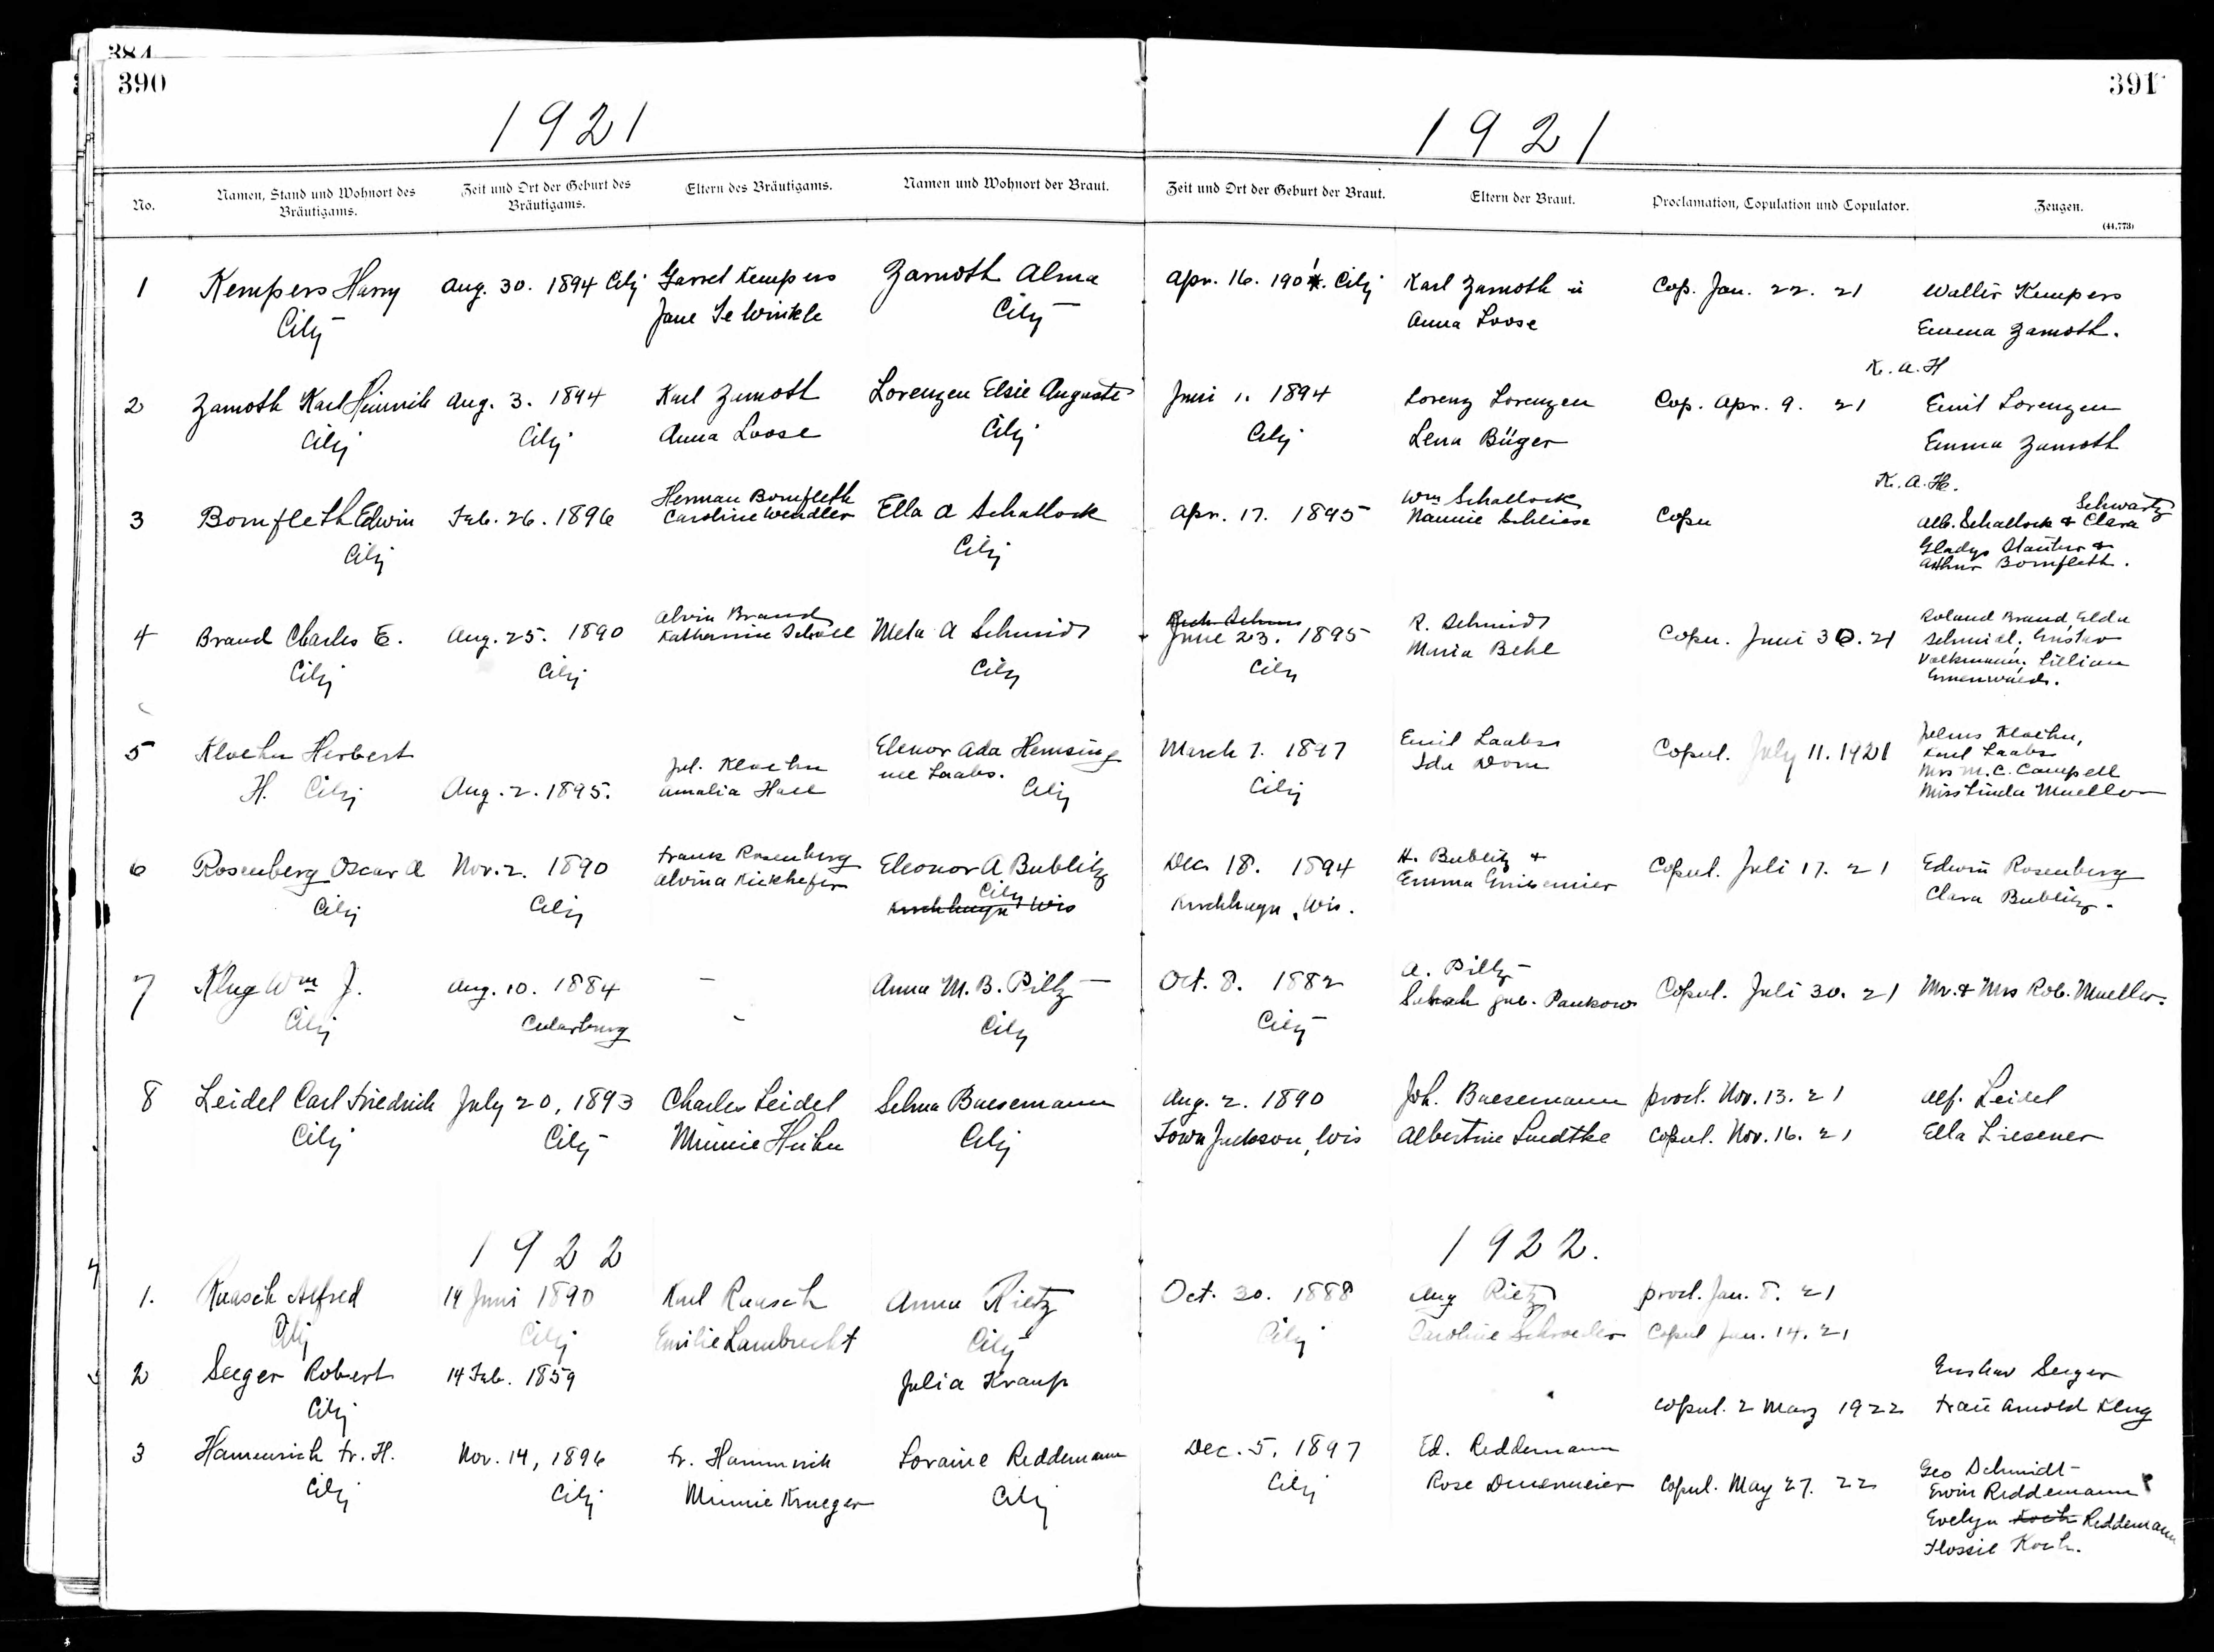 384
390
391
1921
1921
No.
Namen, Stand und Wohnort des Bräutigams.
Zeit und Ort der Geburt des Bräutigams.
Eltern des Bräutigams.
Namen und Wohnort der Braut.
Zeit und Ort der Geburt der Braut.
Eltern der Braut.
Proclamation, Copulation und Copulator.
Zeugen.
(44,773)
1 Kempers Harry Aug. 30. 1894 City Garret Kempers Zamoth Alma Apr. 16. 1901. City Karl Zamoth u Cop. Jan. 22. 21 Walter Kempers
City Jane Te Winkle City Anna Loose Emma Zamoth.
K. A. H
2 Zamoth Karl Heinrich Aug. 3. 1894 Karl Zamoth Lorenzen Elsie Auguste Juni 1. 1894 Lorenz Lorenzen Cop. Apr. 9. 21 Emil Lorenzen
City City Anna Loose City City Lena Büger Emma Zamoth
K. A. H.
3 Bomfleth Edwin Feb. 26. 1896 Herman Bomfleth Ella A Schallock Apr. 17. 1895 Wm Schallock Copu Alb. Schallock & Clara Schwartz
City Caroline Wendler City Nannie Schliese Gladys
Arthur Bomfleth.
4 Brand Charles E. Aug. 25. 1890 Alvin Brand Meta A Schmidt June 23. 1895 R. Schmidt Copu. Juni 30. 21 Roland Brand, Elda
City City Katherine Scholl City City Maria Behl Schmidt, Gustav
Volkmann, Lillian
5 Kloehn Herbert Elenor Ada Hensing March 7. 1897 Emil Laabs Copul. July 11. 1921 Julius Kloehn,
H. City Aug. 2. 1895. Jul. Kloehn nee Laabs. City City Ida Dorn Karl Laabs
Amalia Hall Mrs M. C. Campell
Miss Linda Mueller
6 Rosenberg Oscar A Nov. 2. 1890 Frank Rosenberg Eleonor A Bublitz Dec 18. 1894 H. Bublitz + Copul. Juli 17. 21 Edwin Rosenberg
City City Alvina Kickhefer City Kirchhayn Wis Kirchhayn, Wis. Emma Clara Bublitz.
7 Klug Wm J. Aug. 10. 1884 - Anna M. B. Piltz Oct. 8. 1882 A. Piltz Copul. Juli 30. 21 Mr. & Mrs Rob. Mueller.
City Cedarburg - City City geb. Pankow
8 Leidel Carl Friedrich July 20, 1893 Charles Leidel Selma Baesemann Aug. 2. 1890 Joh. Baesemann procl. Nov. 13. 21 Alf. Leidel
City City Minnie Huhn City Town Jackson, Wis Albertine Luedtke Copul. Nov. 16. 21 Ella Liesener
1922
1922.
1. Raasch Alfred 14 Juni 1890 Karl Raasch Anna Rietz Oct. 30. 1888 Aug Rietz procl. Jan. 8. 21
City City Emilie Lambrecht City City Caroline Schroeder Copul Jan. 14. 21
2 Seeger Robert 14 Feb. 1859 Julia Kraup Gustav Seeger
City Copul. 2 Marz 1922 Frau Arnold Klug
3 Hammrich Fr. H. Nov. 14, 1896 Fr. Hammrich Loraine Reddemann Dec. 5, 1897 Ed. Reddemann Copul. May 27. 22 Geo Schmidt
City City Minnie Krueger City City Rose Erwin Reddemann
Evelyn Koch Reddemann
Flossie Koch.